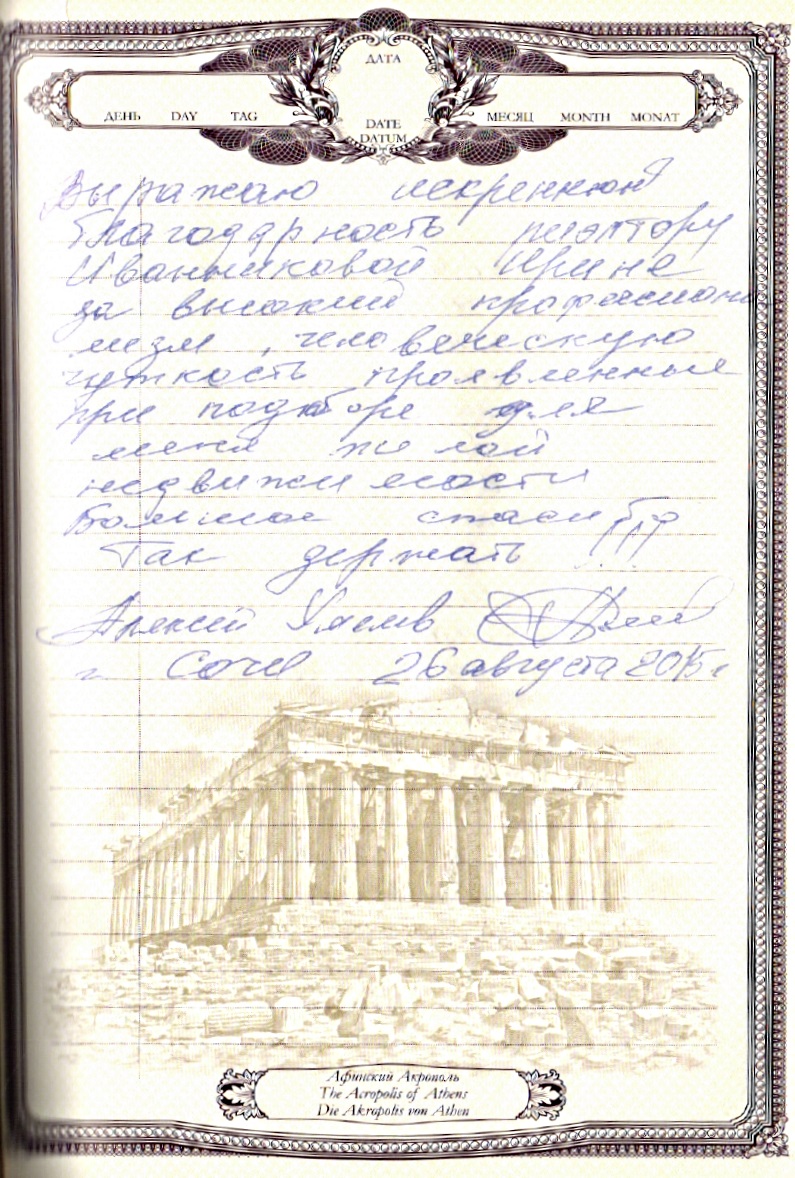 ДАТА
ДЕНЬ DAY TAG
DATE
DATUM
МЕСЯЦ MONTH MONAT
Выражаю искреннюю
благодарность риэлтору
Иванниковой Ирине
за высокий профессиона
лизм, человеческую
чуткость проявленные
при подборе для
меня жилой
недвижимости
Большое спасибо
Так держать !!!
Алексей
г. Сочи 26 августа 2015 г
Афинский Акрополь
The Acropolis of Athens
Die Akropolis von Athen